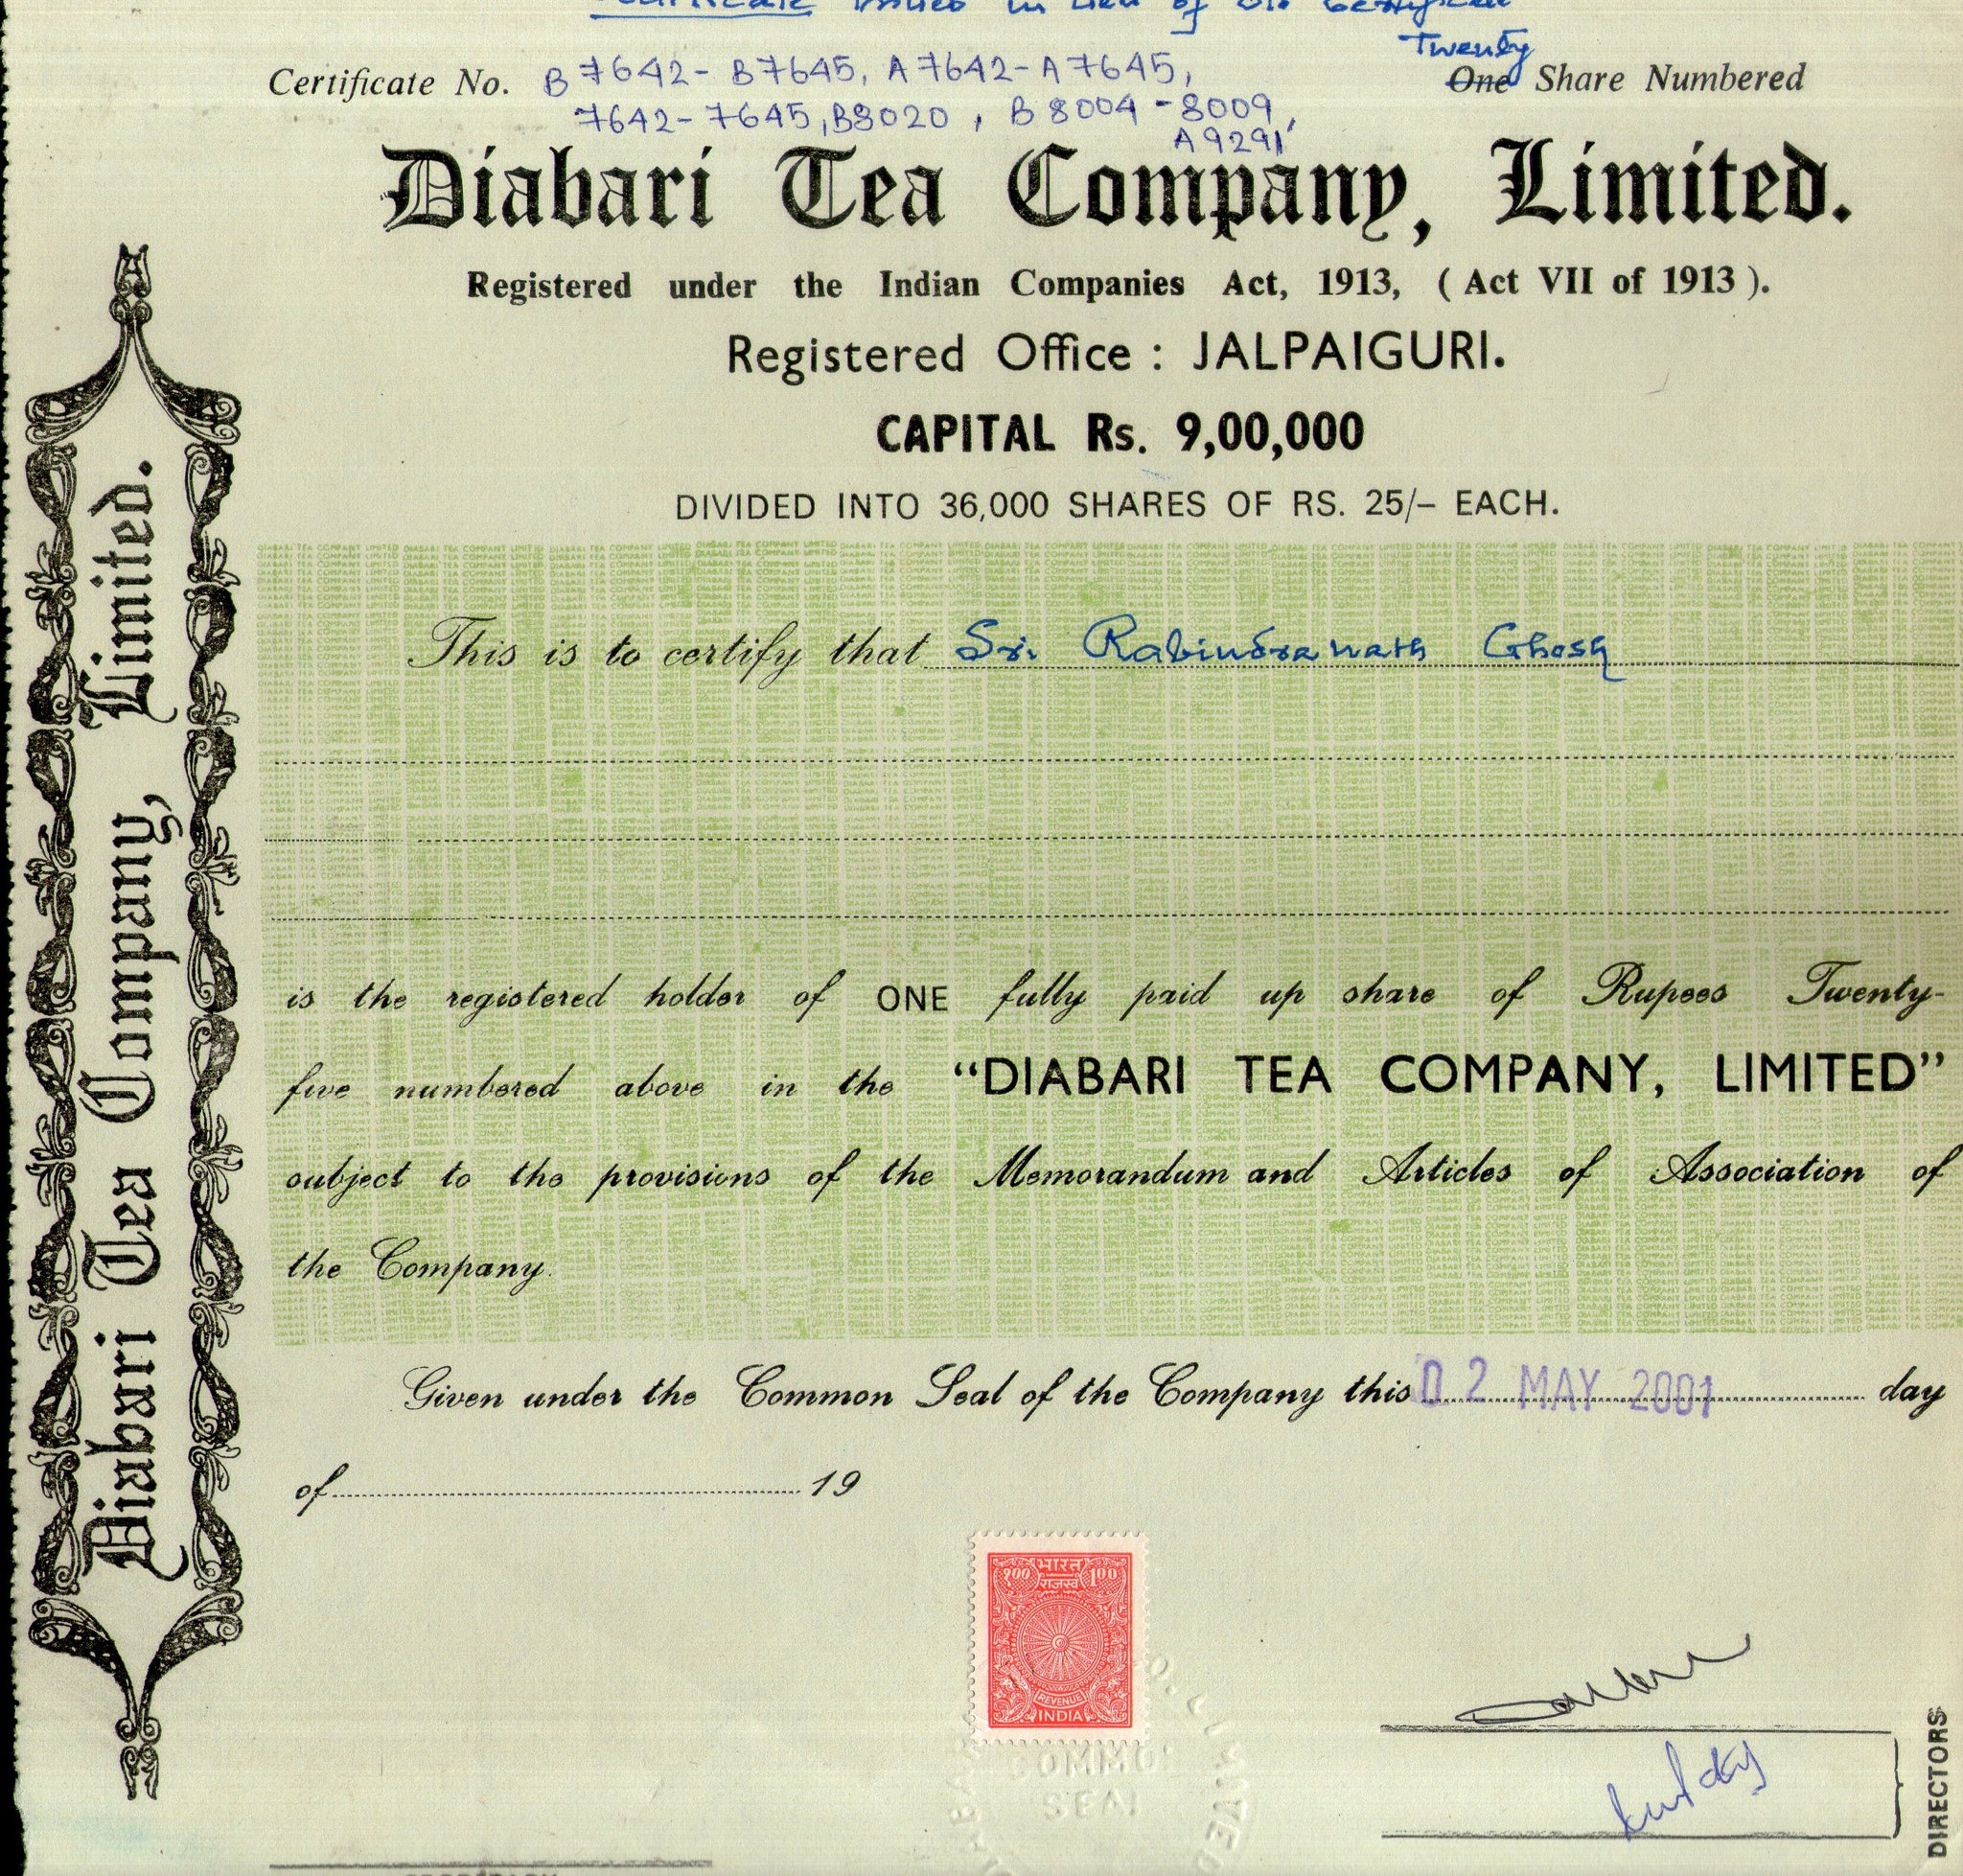 Certificate issued in lieu of old Certificate
Twenty
Certificate No. B 7642- B7645, A7642-A7645, One Share Numbered
7642-7645, B8020, B 8004 - 8009,
A9291
Diabari Tea Company, Limited.
Registered under the Indian Companies Act, 1913, ( Act VII of 1913 ).
Registered Office : JALPAIGURI.
CAPITAL Rs. 9,00,000
DIVIDED INTO 36,000 SHARES OF RS. 25/– EACH.
Diabari Tea Company, Limited.
This is to certify that Sri Rabindranath Ghosh
is the registered holder of ONE fully paid up share of Rupees Twenty-
five numbered above in the “DIABARI TEA COMPANY, LIMITED”
subject to the provisions of the Memorandum and Articles of Association of
the Company.
Given under the Common Seal of the Company this 02 MAY 2001 day
of 19
भारत
१00 राजस्व 1.00
REVENUE
INDIA
COMMON
SEAL
DIRECTORS